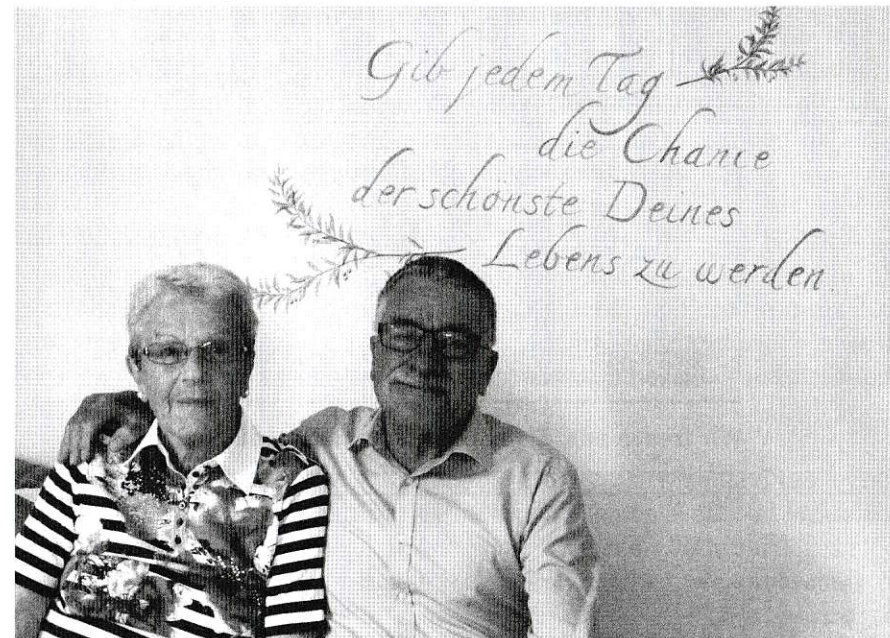 Gib jedem Tag
die Chance
der schönste Deines
Lebens zu werden.